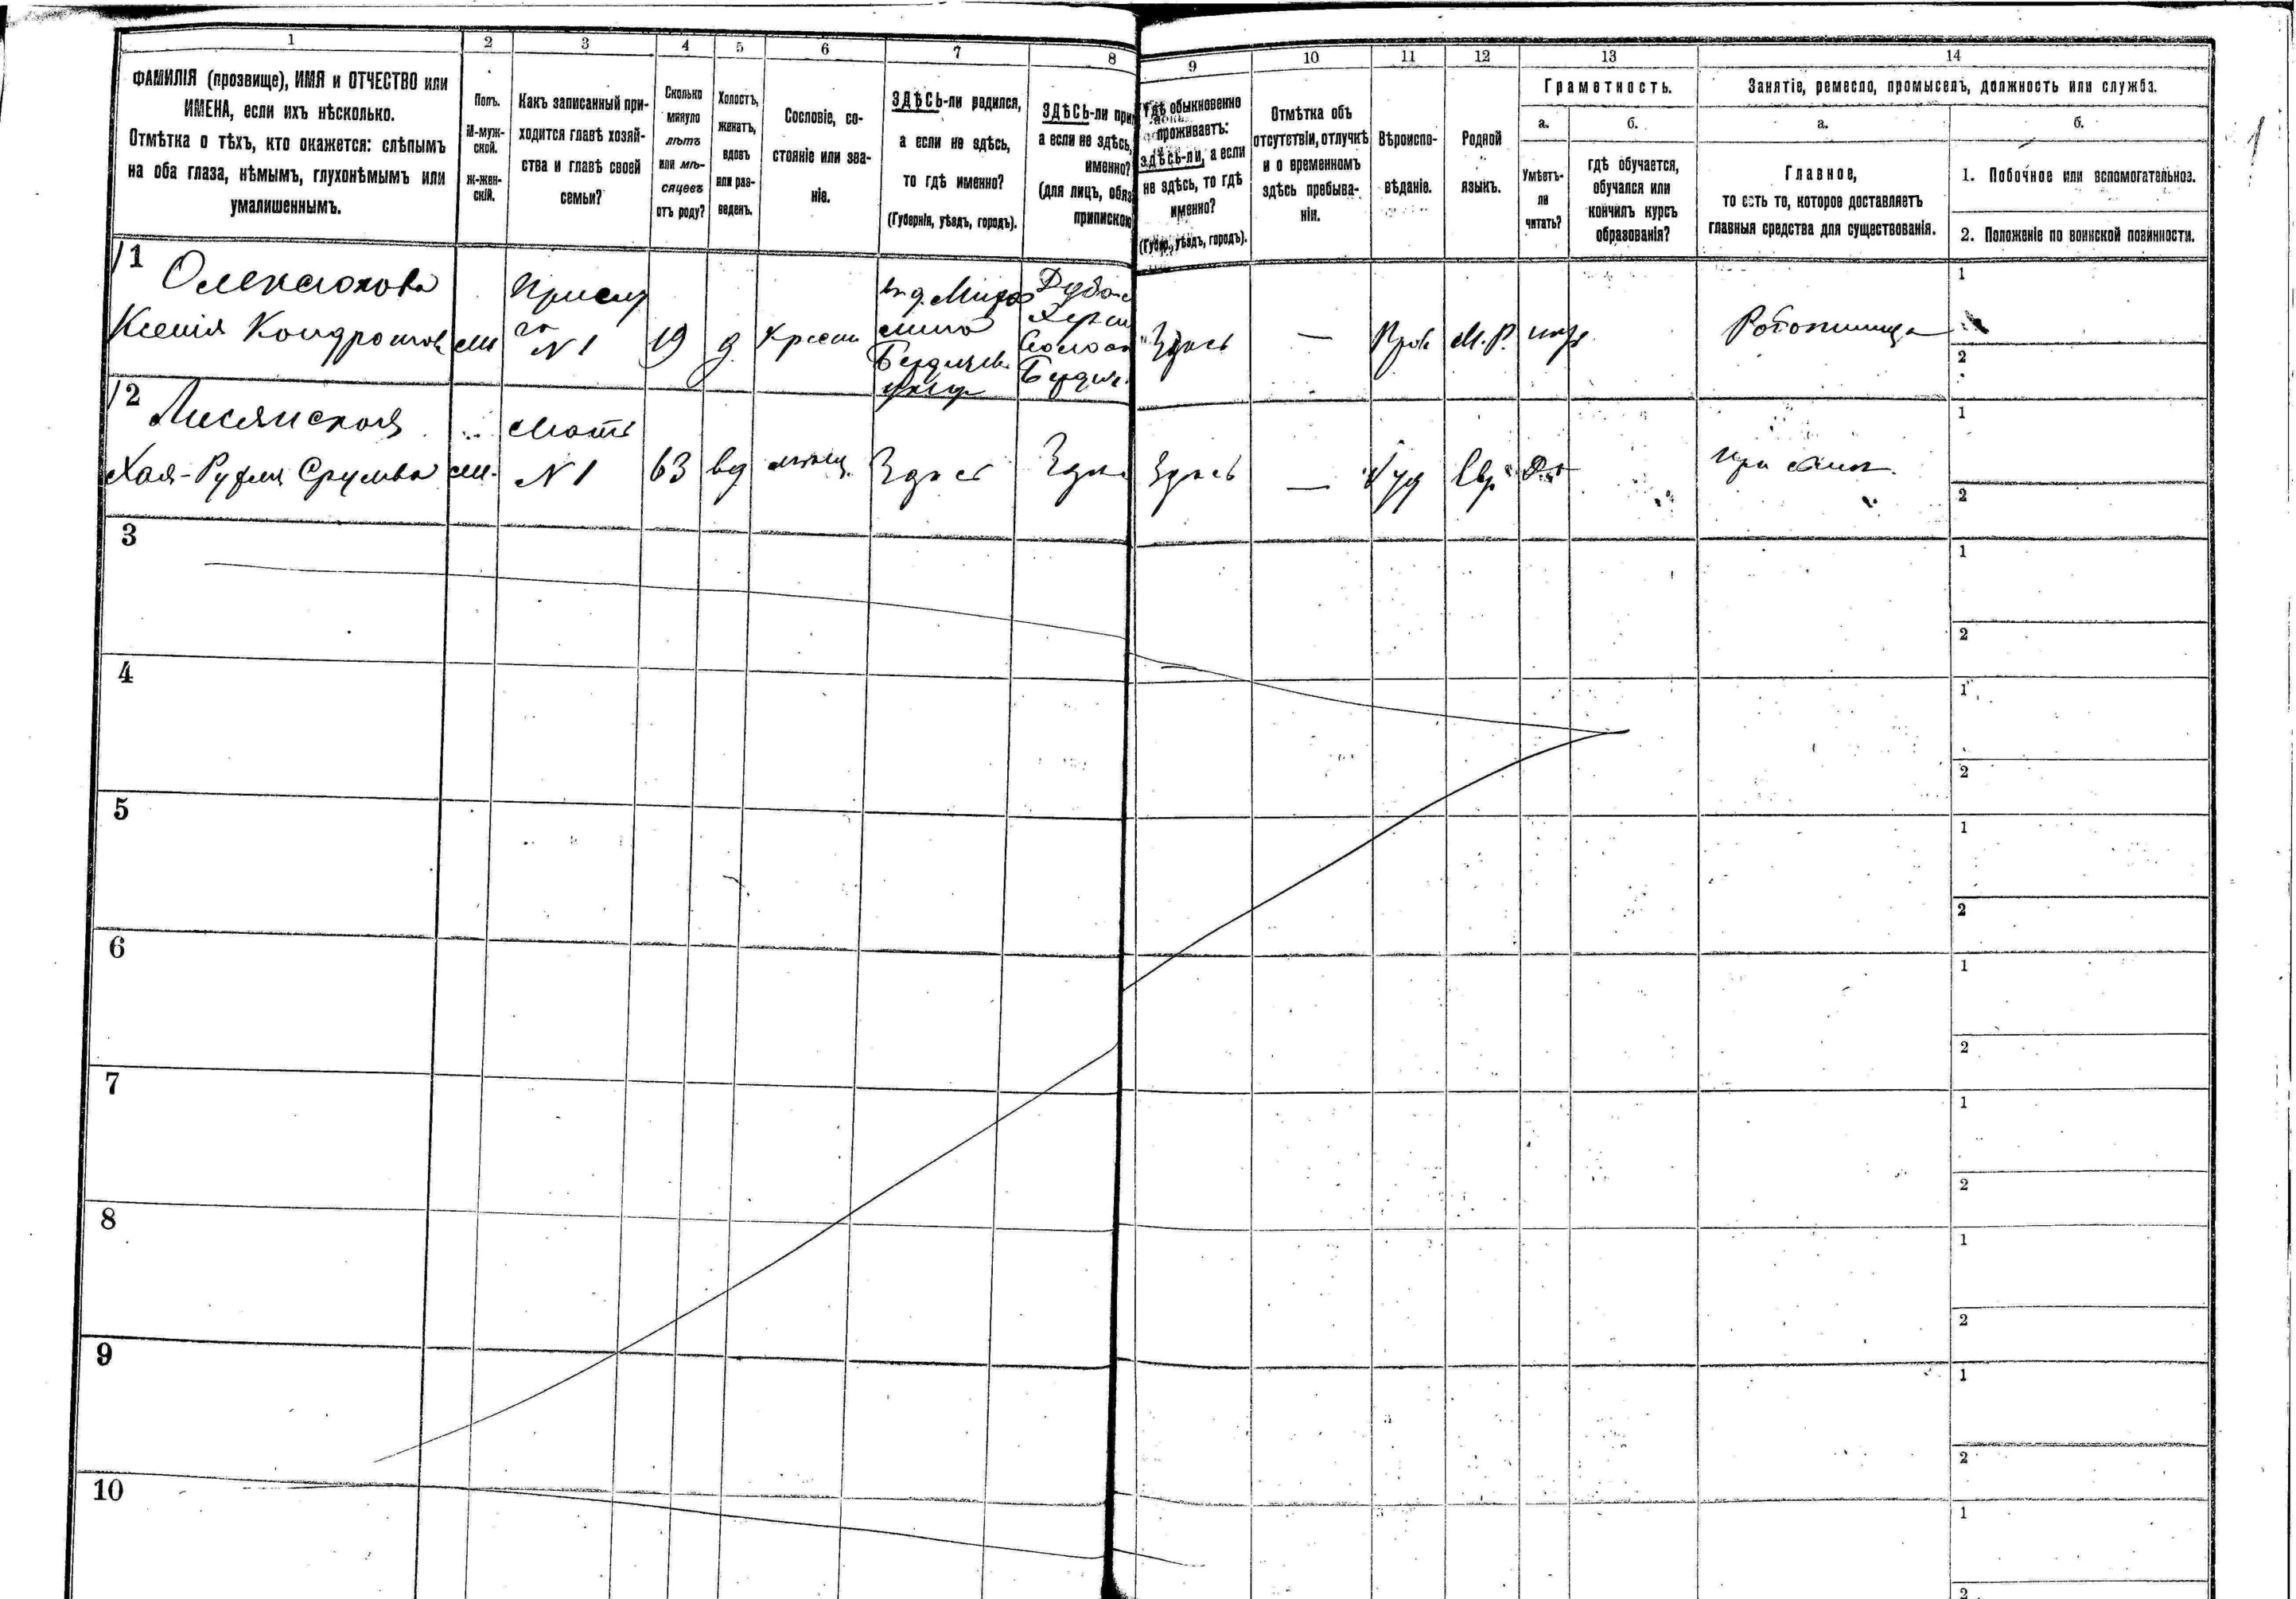 1 2 3 4 5 6 7 8 9 10 11 12 13 14
ФАМИЛІЯ (прозвище), ИМЯ и ОТЧЕСТВО или
ИМЕНА, если ихъ нѣсколько.
Отмѣтка о тѣхъ, кто окажется: слѣпымъ
на оба глаза, нѣмымъ, глухонѣмымъ или
умалишеннымъ.
Полъ.
М-муж-
ской.
Ж-жен-
скій.
Какъ записанный при-
ходится главѣ хозяй-
ства и главѣ своей
семьи?
Сколько
минуло
лѣтъ
или мѣ-
сяцевъ
отъ роду?
Холостъ,
женатъ,
вдовъ
или раз-
веденъ.
Сословіе, со-
стояніе или зва-
ніе.
ЗДѢСЬ-ли родился,
а если не здѣсь,
то гдѣ именно?
(Губернія, уѣздъ, городъ).
ЗДѢСЬ-ли при
а если не здѣсь,
именно?
(для лицъ, обяз
припискою
Гдѣ обыкновенно
проживаетъ:
здѣсь-ли, а если
не здѣсь, то гдѣ
именно?
(Губер., уѣздъ, городъ).
Отмѣтка объ
отсутствіи, отлучкѣ
и о временномъ
здѣсь пребыва-
ніи.
Вѣроиспо-
вѣданіе.
Родной
языкъ.
Грамотность.
а.
Умѣетъ-
ли
читать?
б.
гдѣ обучается,
обучался или
кончилъ курсъ
образованія?
Занятіе, ремесло, промыселъ, должность или служба.
а.
Главное,
то есть то, которое доставляетъ
главныя средства для существованія.
б.
1. Побочное или вспомогательное.
2. Положеніе по воинской повинности.
1
Ксенія
N 1
19
д
Крест
Бердичев.
Бердич.
Здѣсь
—
Прав
М.Р.
1
2
2
Лисянская
Хая-
Мать
N 1
63
вд
мѣщ.
Здѣсь
Здѣсь
—
Іуд
Евр
При сынѣ
1
2
3
1
2
4
1
2
5
1
2
6
1
2
7
1
2
8
1
2
9
1
2
10
1
2